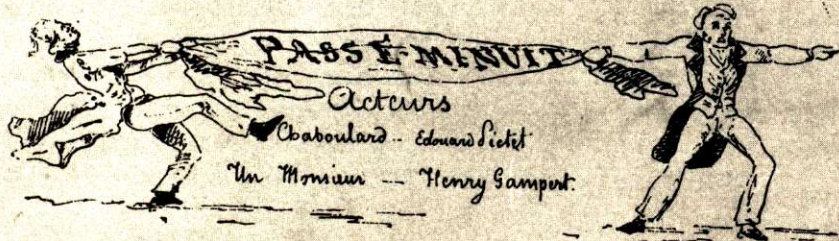 PASSÉ-MINUIT
Acteurs
Chaboulard -- Edouard Pictet
Un Monsieur -- Henry Gampert.